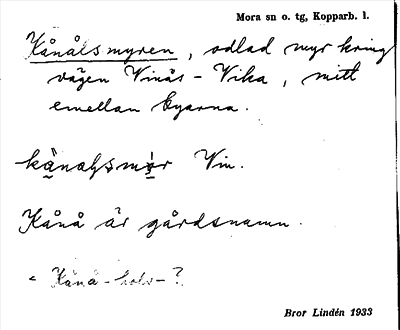 Mora sn o. tg, Kopparb. l.
Kånålsmyren, odlad myr kring
vägen Vinäs - Vika, mitt
emellan byarna.
Vin.
Kånå är gårdsnamn.
< Kånå-hols-?
Bror Lindén 1933